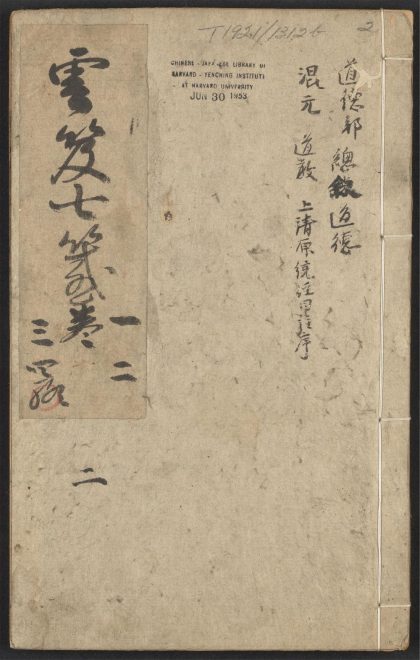 T 1921/1312b
2
CHINESE - JAPANESE LIBRARY OF
HARVARD - YENCHING INSTITUTE
AT HARVARD UNIVERSITY
JUN 30 1953
道德部 總敘道德
混元 道教 上清原統經目註序
雲笈七籖卷
一二
三
二